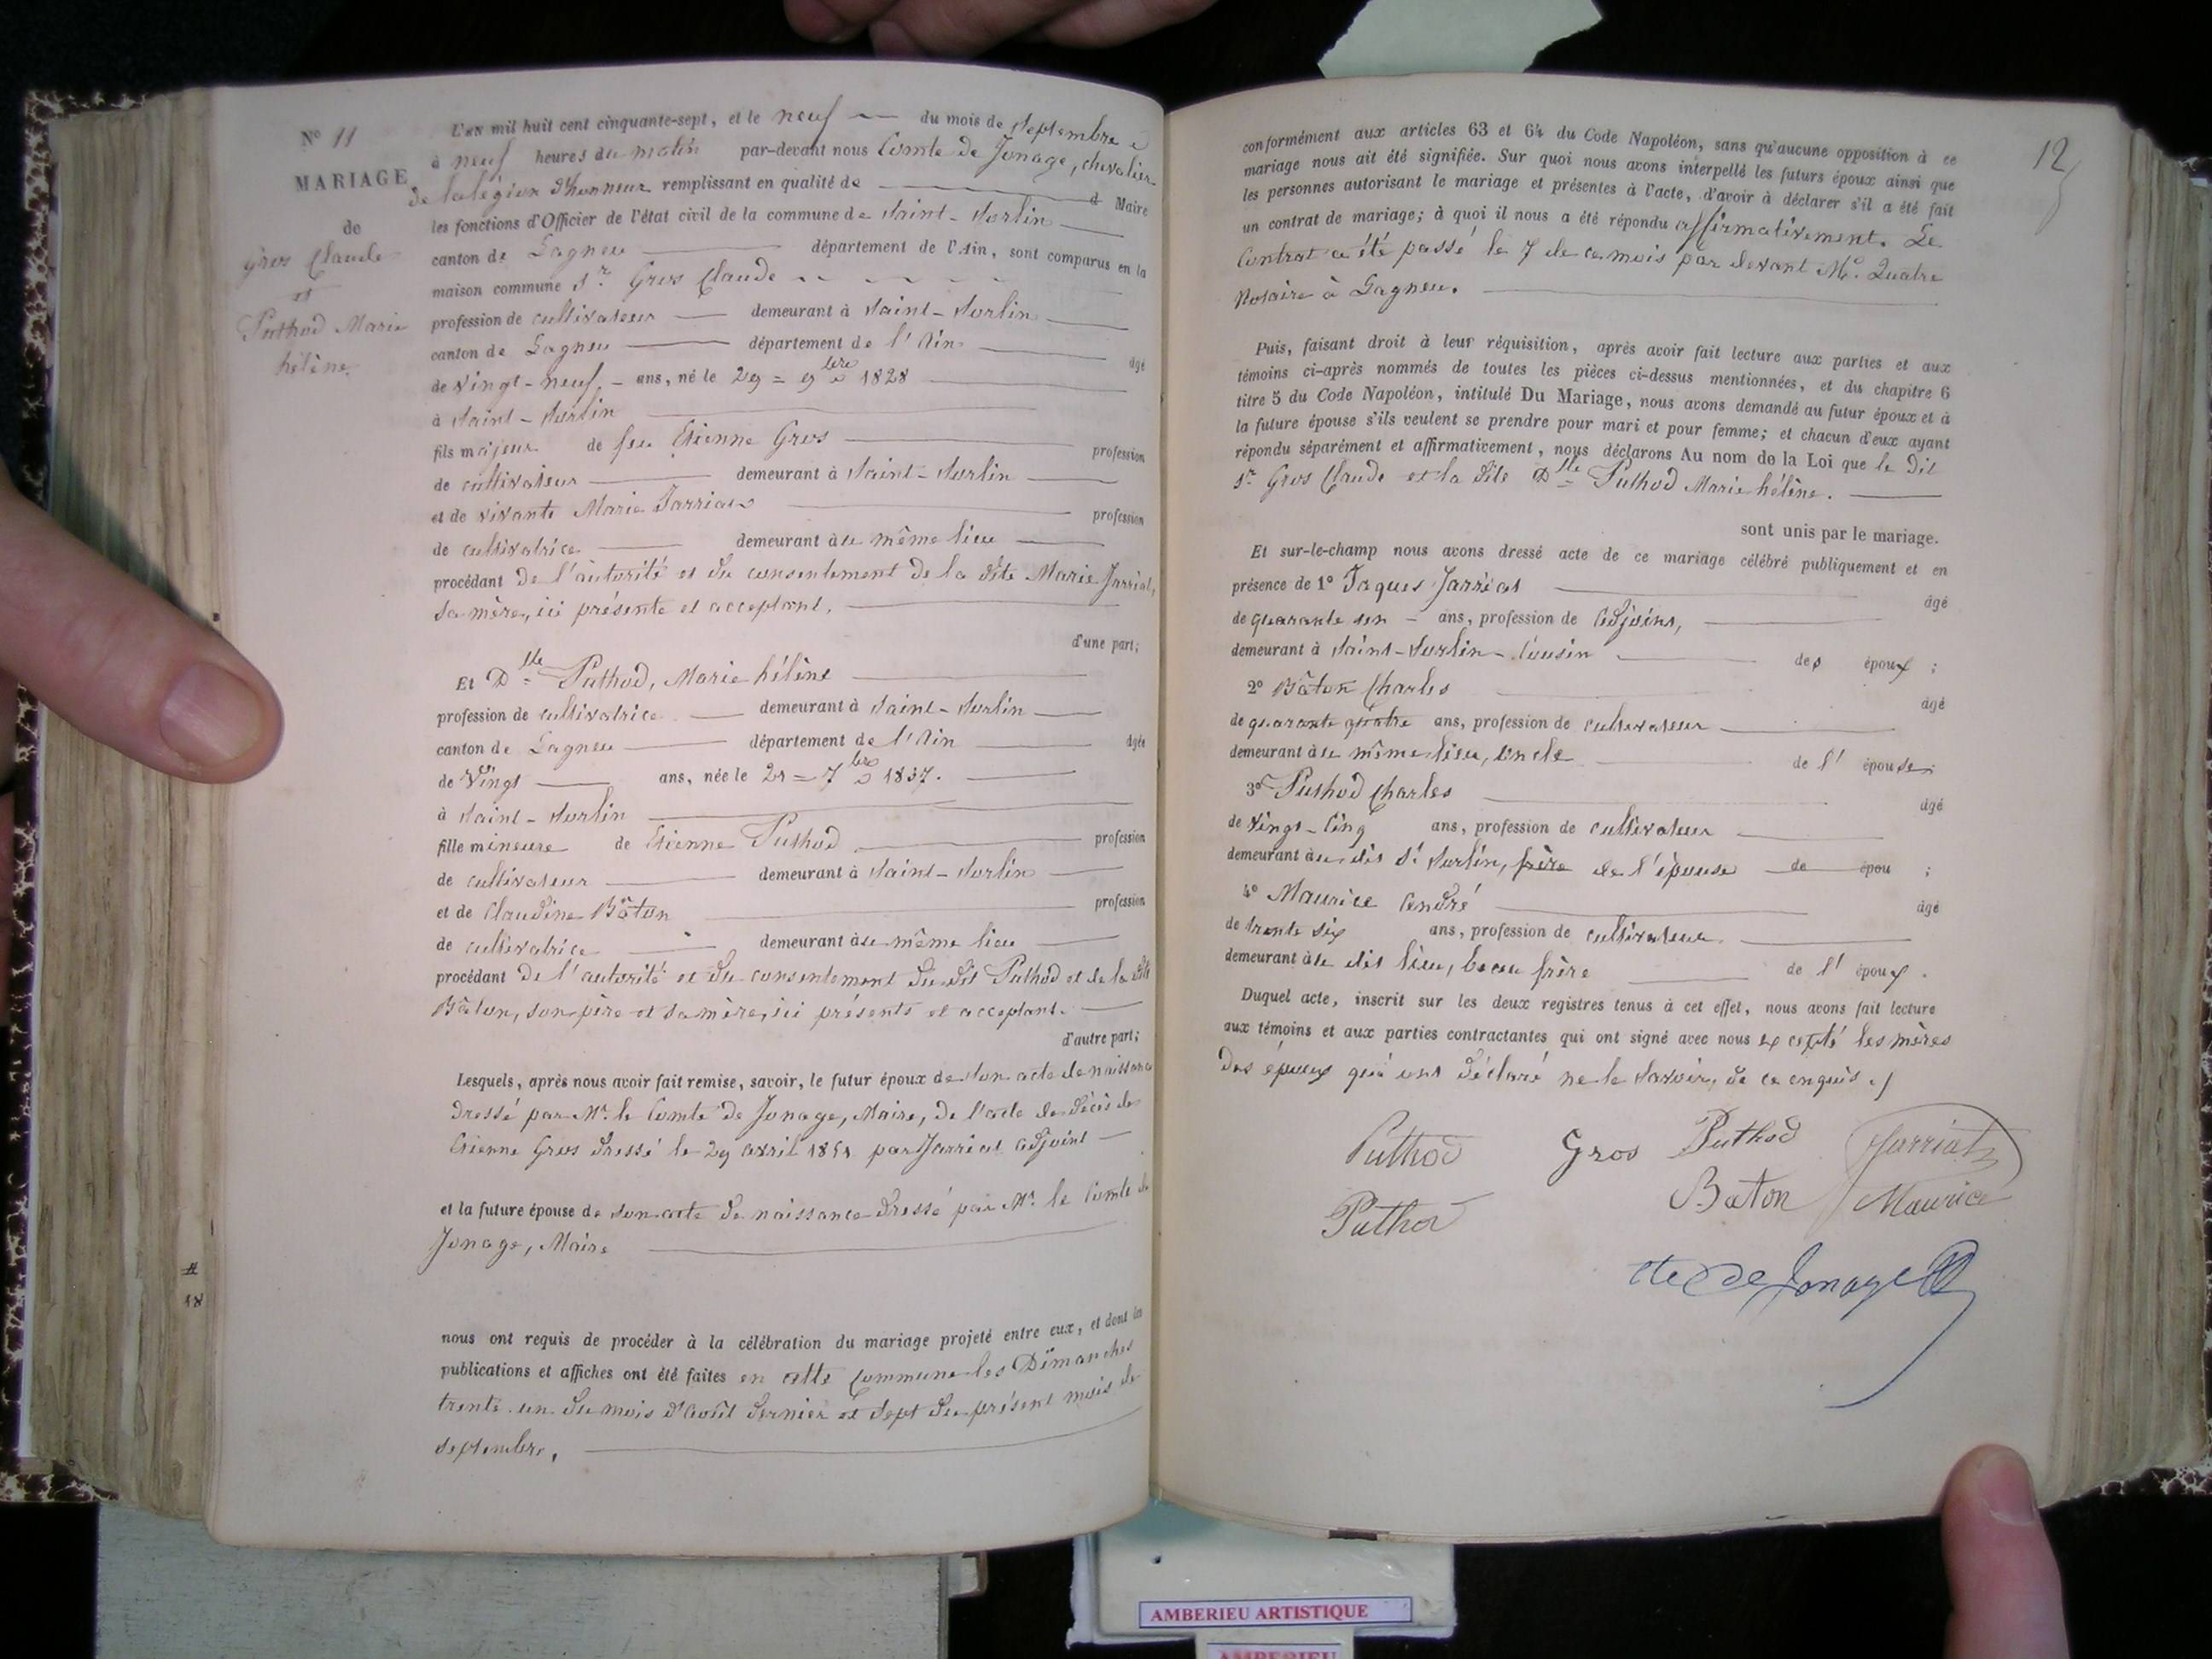 N° 11
MARIAGE
de
Gros Claude
et
Puthod Marie
hélène.
L'an mil huit cent cinquante-sept, et le neuf du mois de septembre
à neuf heures du matin par-devant nous Comte de Jonage, chevalier
de la légion d'honneur remplissant en qualité de Maire
les fonctions d'Officier de l'état civil de la commune de Saint-Sorlin
canton de Lagneu département de l'Ain, sont comparus en la
maison commune Sr Gros Claude
profession de cultivateur demeurant à Saint-Sorlin
canton de Lagneu département de l'Ain âgé
de vingt-neuf ans, né le 29 = 9bre 1828
à Saint-Sorlin
fils majeur de feu Etienne Gros profession
de cultivateur demeurant à Saint-Sorlin
et de vivante Marie Jarriat profession
de cultivatrice demeurant au même lieu
procédant de l'autorité et du consentement de la dite Marie Jarriat,
sa mère, ici présente et acceptant.
d'une part;
Et Dlle Puthod, Marie hélène
profession de cultivatrice demeurant à Saint-Sorlin
canton de Lagneu département de l'Ain âgée
de Vingt ans, née le 21 = 7bre 1837.
à Saint-Sorlin
fille mineure de Etienne Puthod profession
de cultivateur demeurant à Saint-Sorlin
et de Claudine Bâton profession
de cultivatrice demeurant au même lieu
procédant de l'autorité et du consentement du dit Puthod et de la dite
Bâton, son père et sa mère, ici présents et acceptant.
d'autre part;
Lesquels, après nous avoir fait remise, savoir, le futur époux de son acte de naissance
dressé par Mr. le Comte de Jonage, Maire, de l'acte de décès de
Etienne Gros dressé le 29 avril 1851 par Jarriat adjoint
et la future épouse de son acte de naissance dressé par Mr. le Comte de
Jonage, Maire
11
18
nous ont requis de procéder à la célébration du mariage projeté entre eux, et dont les
publications et affiches ont été faites en cette commune les Dimanches
trente un du mois d'août dernier et sept du présent mois de
septembre.
12
conformément aux articles 63 et 64 du Code Napoléon, sans qu'aucune opposition à ce
mariage nous ait été signifiée. Sur quoi nous avons interpellé les futurs époux ainsi que
les personnes autorisant le mariage et présentes à l'acte, d'avoir à déclarer s'il a été fait
un contrat de mariage; à quoi il nous a été répondu affirmativement. Le
Contrat a été passé le 7 de ce mois par devant Me. Quatre
Notaire à Lagneu.
Puis, faisant droit à leur réquisition, après avoir fait lecture aux parties et aux
témoins ci-après nommés de toutes les pièces ci-dessus mentionnées, et du chapitre 6
titre 5 du Code Napoléon, intitulé Du Mariage, nous avons demandé au futur époux et à
la future épouse s'ils veulent se prendre pour mari et pour femme; et chacun d'eux ayant
répondu séparément et affirmativement, nous déclarons Au nom de la Loi que le dit
Sr Gros Claude et la dite Dlle Puthod Marie hélène.
sont unis par le mariage.
Et sur-le-champ nous avons dressé acte de ce mariage célébré publiquement et en
présence de 1° Jaques Jarriat âgé
de quarante ans, profession de adjoint,
demeurant à Saint-Sorlin-Cousin des époux;
2° Bâton Charles âgé
de quarante quatre ans, profession de cultivateur
demeurant au même lieu, oncle de l'épouse;
3° Puthod Charles âgé
de vingt-cinq ans, profession de cultivateur
demeurant au dit St Sorlin, frère de l'épouse de épou;
4° Maurice André âgé
de trente six ans, profession de cultivateur
demeurant au dit lieu, beau frère de l'époux.
Duquel acte, inscrit sur les deux registres tenus à cet effet, nous avons fait lecture
aux témoins et aux parties contractantes qui ont signé avec nous excepté les mères
des époux qui ont déclaré ne le savoir, de ce enquis./
Puthod Gros Puthod Jarriat
Puthod Baton Maurice
Cte de Jonage
AMBERIEU ARTISTIQUE
AMBERIEU